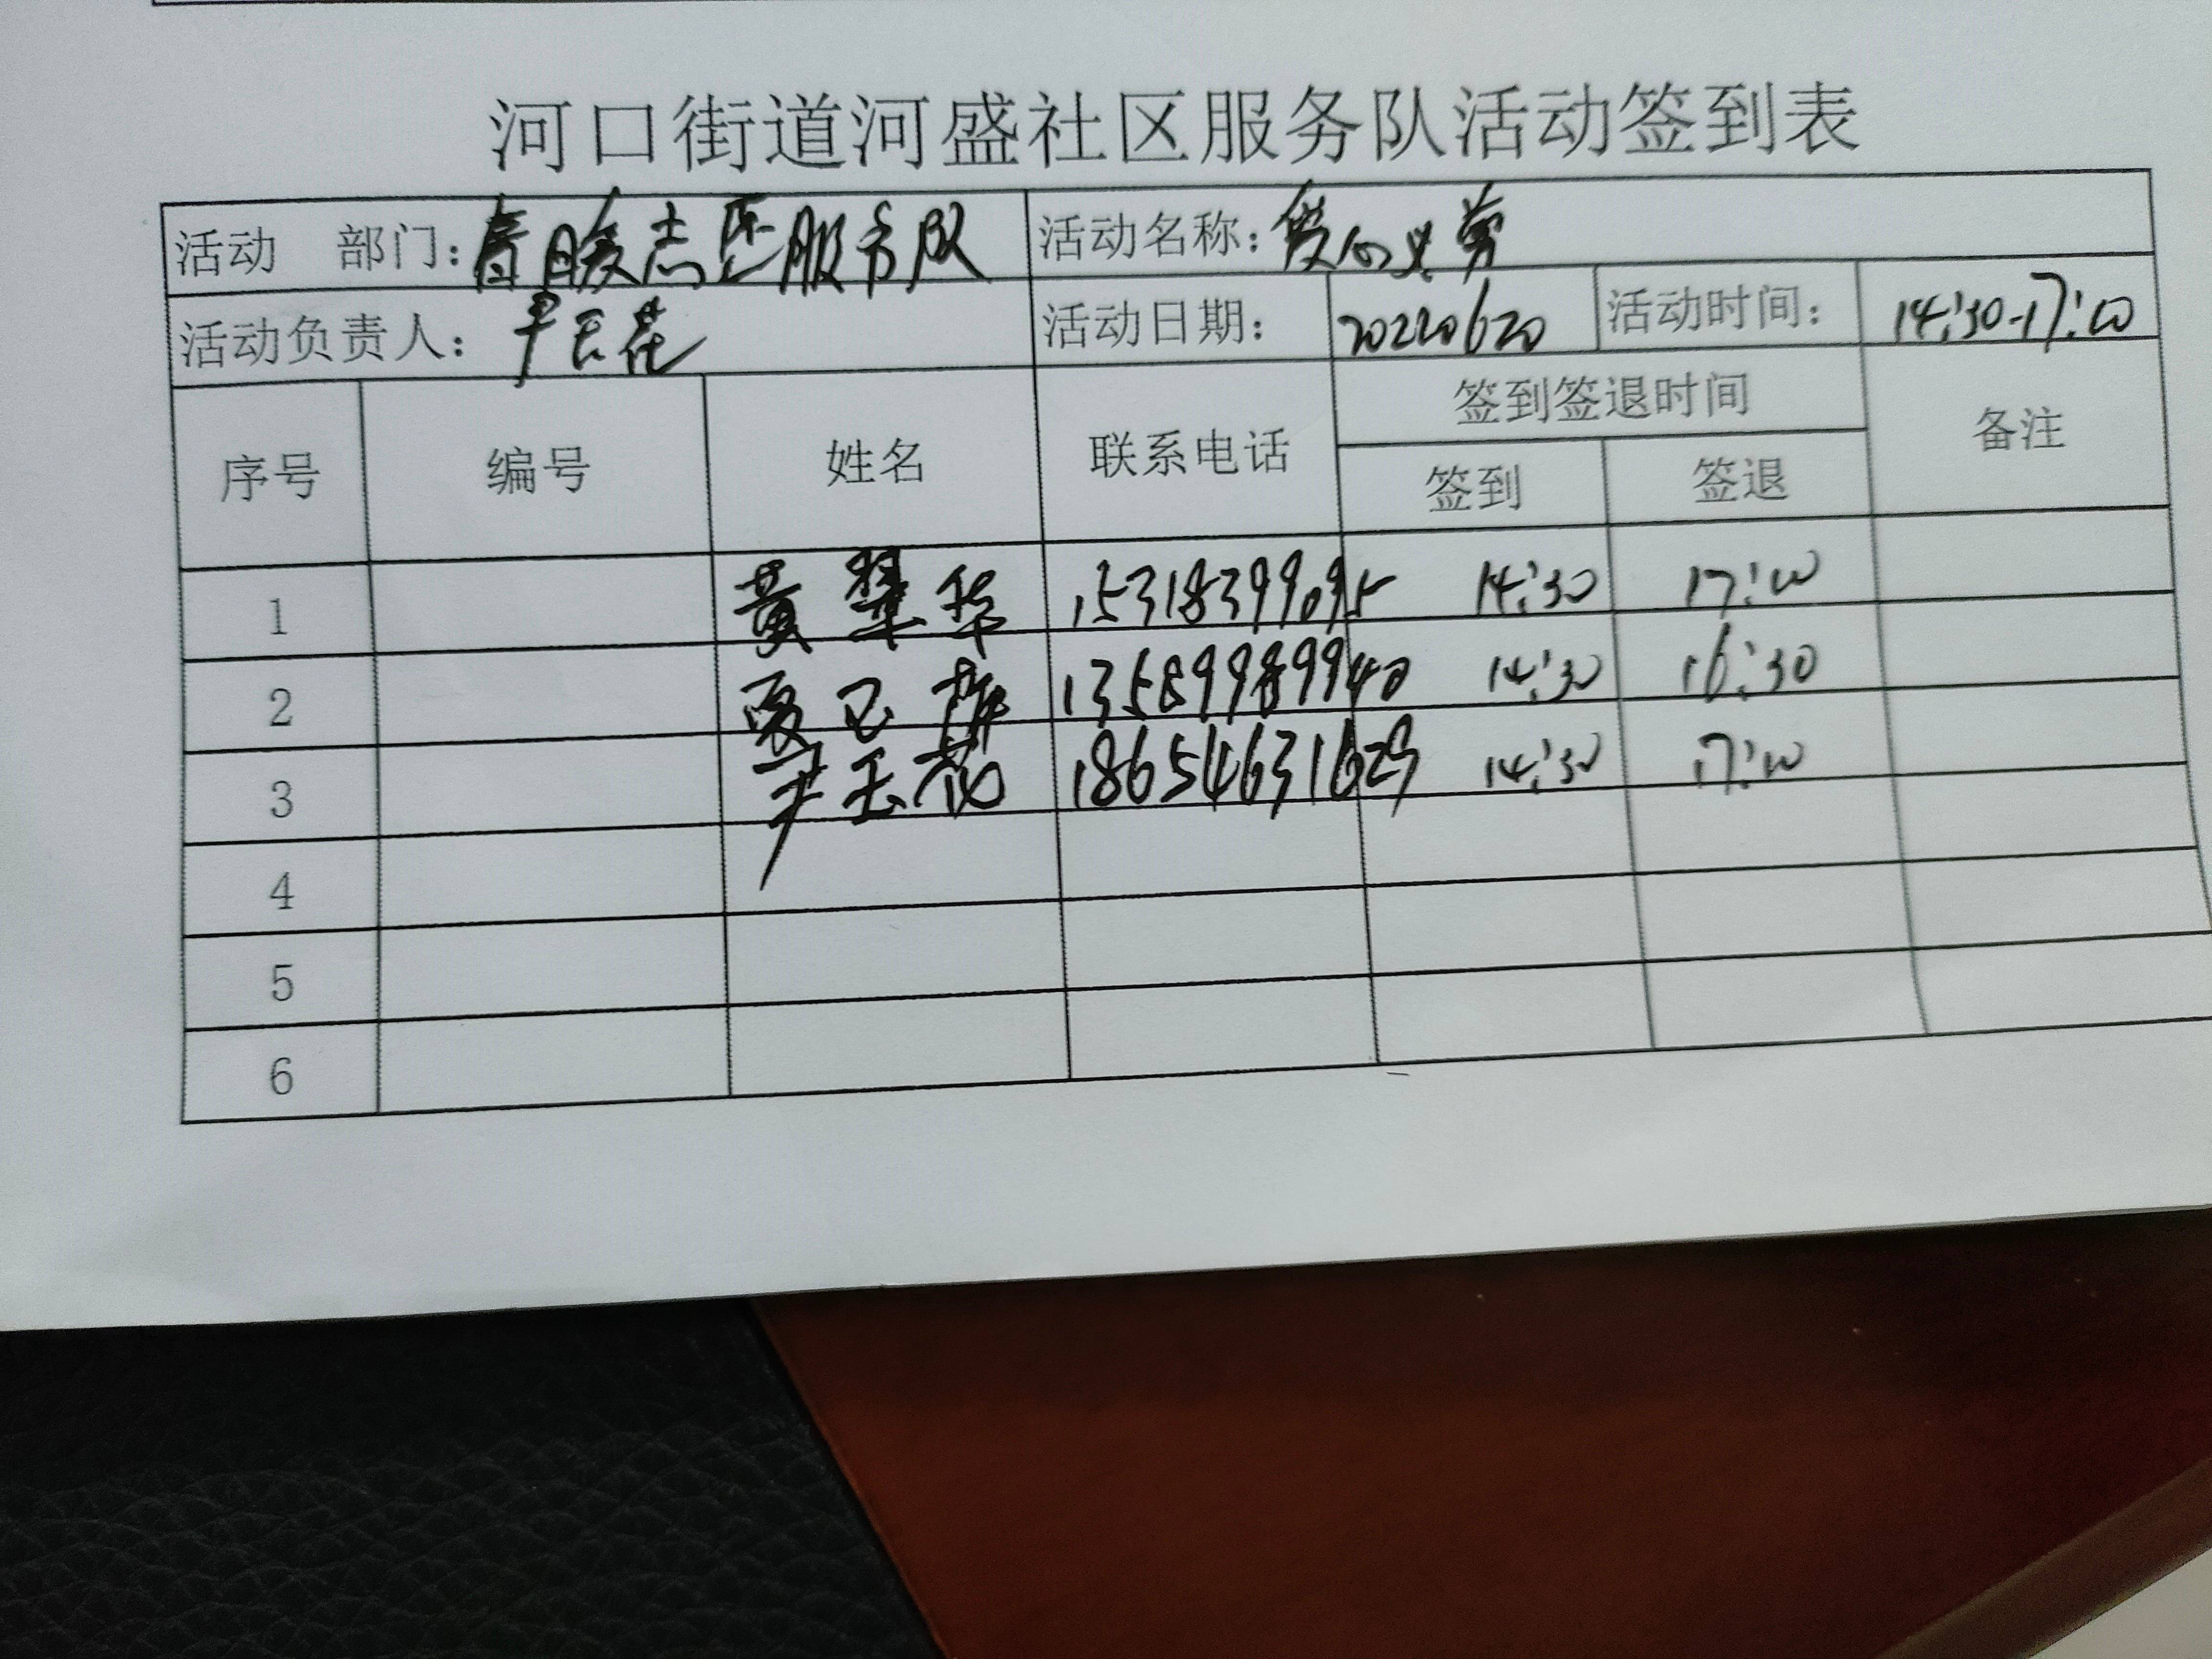 河口街道河盛社区服务队活动签到表
活动 部门：春暖志愿服务队 活动名称：爱心义剪
活动负责人：尹玉花 活动日期：20220620 活动时间：14:30-17:00
序号 编号 姓名 联系电话 签到签退时间 备注
签到 签退
1 黄翠华 15318399095 14:30 17:00
2 13589989940 14:30 16:30
3 尹玉花 18654631629 14:30 17:00
4
5
6